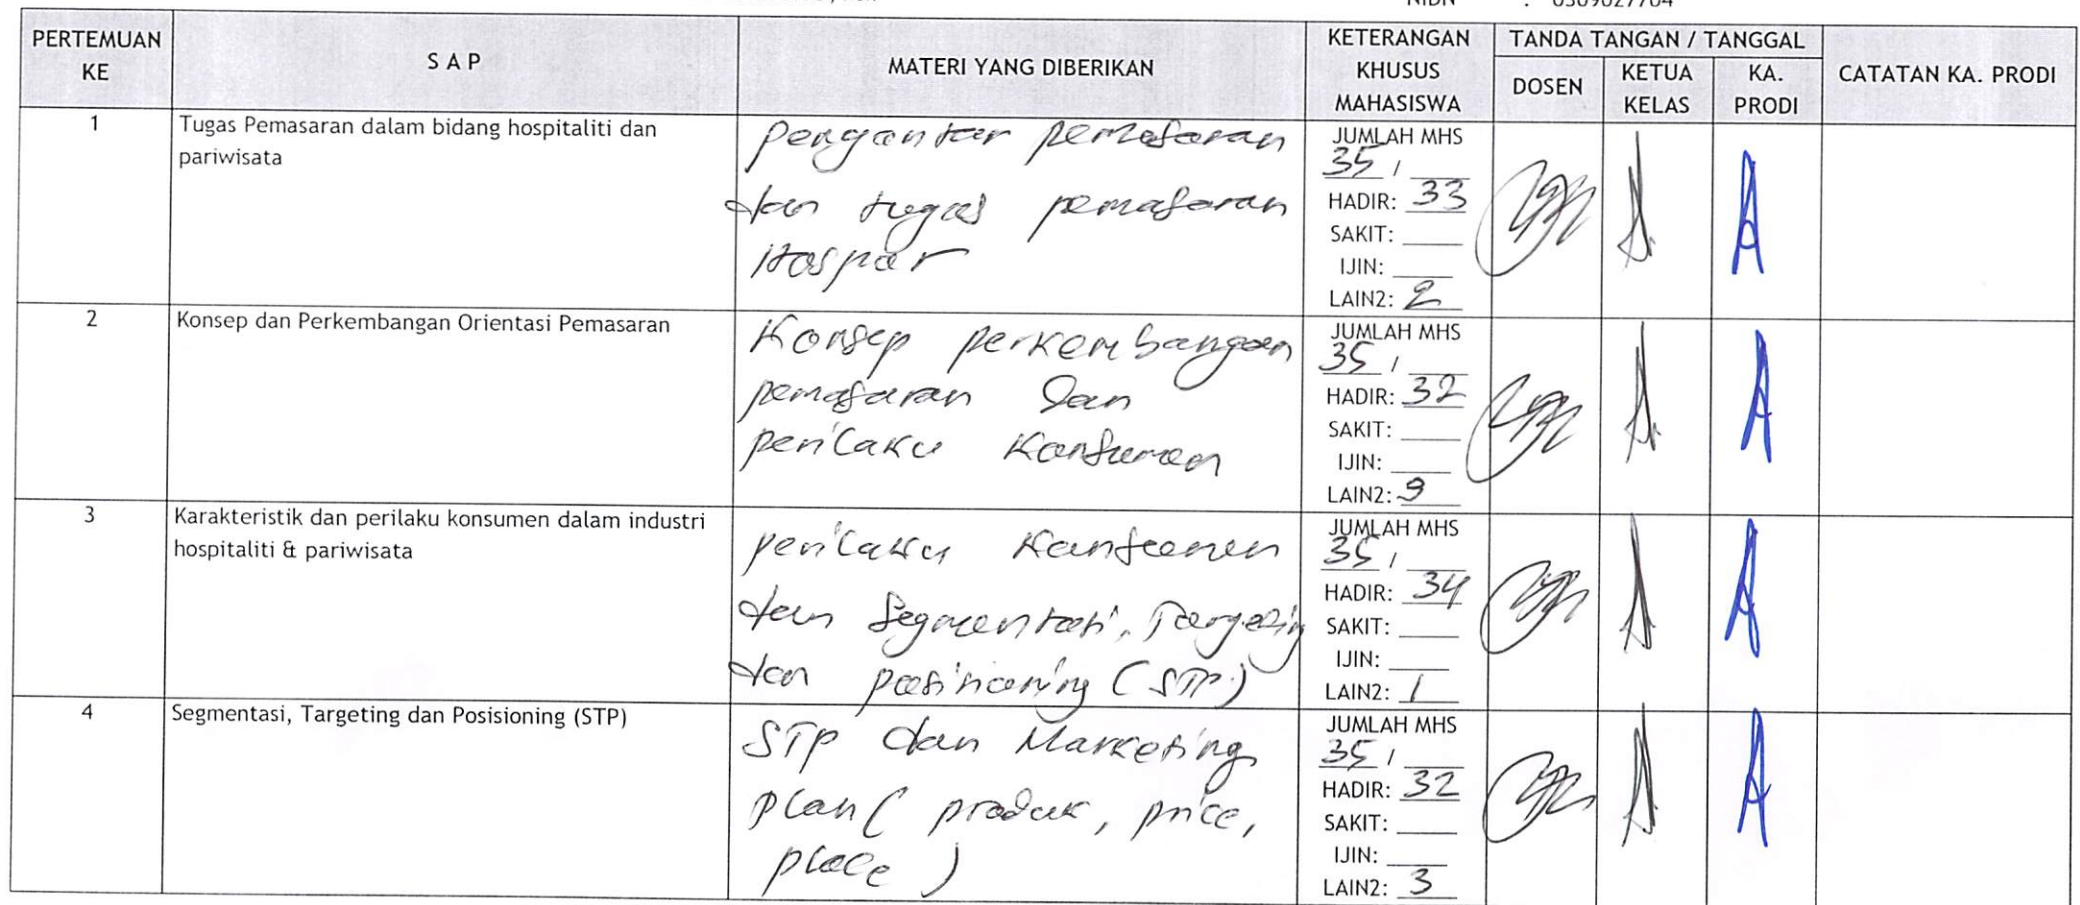 NIDN : 0309027704
PERTEMUAN KE
S A P
MATERI YANG DIBERIKAN
KETERANGAN KHUSUS MAHASISWA
TANDA TANGAN / TANGGAL
DOSEN
KETUA KELAS
KA. PRODI
CATATAN KA. PRODI
1
Tugas Pemasaran dalam bidang hospitaliti dan
pariwisata
pengantar pemasaran
dan tugas pemasaran
Hospar
JUMLAH MHS
35 /
HADIR: 33
SAKIT:
IJIN:
LAIN2: 2
2
Konsep dan Perkembangan Orientasi Pemasaran
Konsep perkembangan
pemasaran dan
perilaku Konsumen
JUMLAH MHS
35 /
HADIR: 32
SAKIT:
IJIN:
LAIN2: 3
3
Karakteristik dan perilaku konsumen dalam industri
hospitaliti & pariwisata
perilaku Konsumen
dan Segmentasi, Targeting
dan positioning (STP)
JUMLAH MHS
35 /
HADIR: 34
SAKIT:
IJIN:
LAIN2: 1
4
Segmentasi, Targeting dan Posisioning (STP)
STP dan Marketing
plan ( produk, price,
place )
JUMLAH MHS
35 /
HADIR: 32
SAKIT:
IJIN:
LAIN2: 3